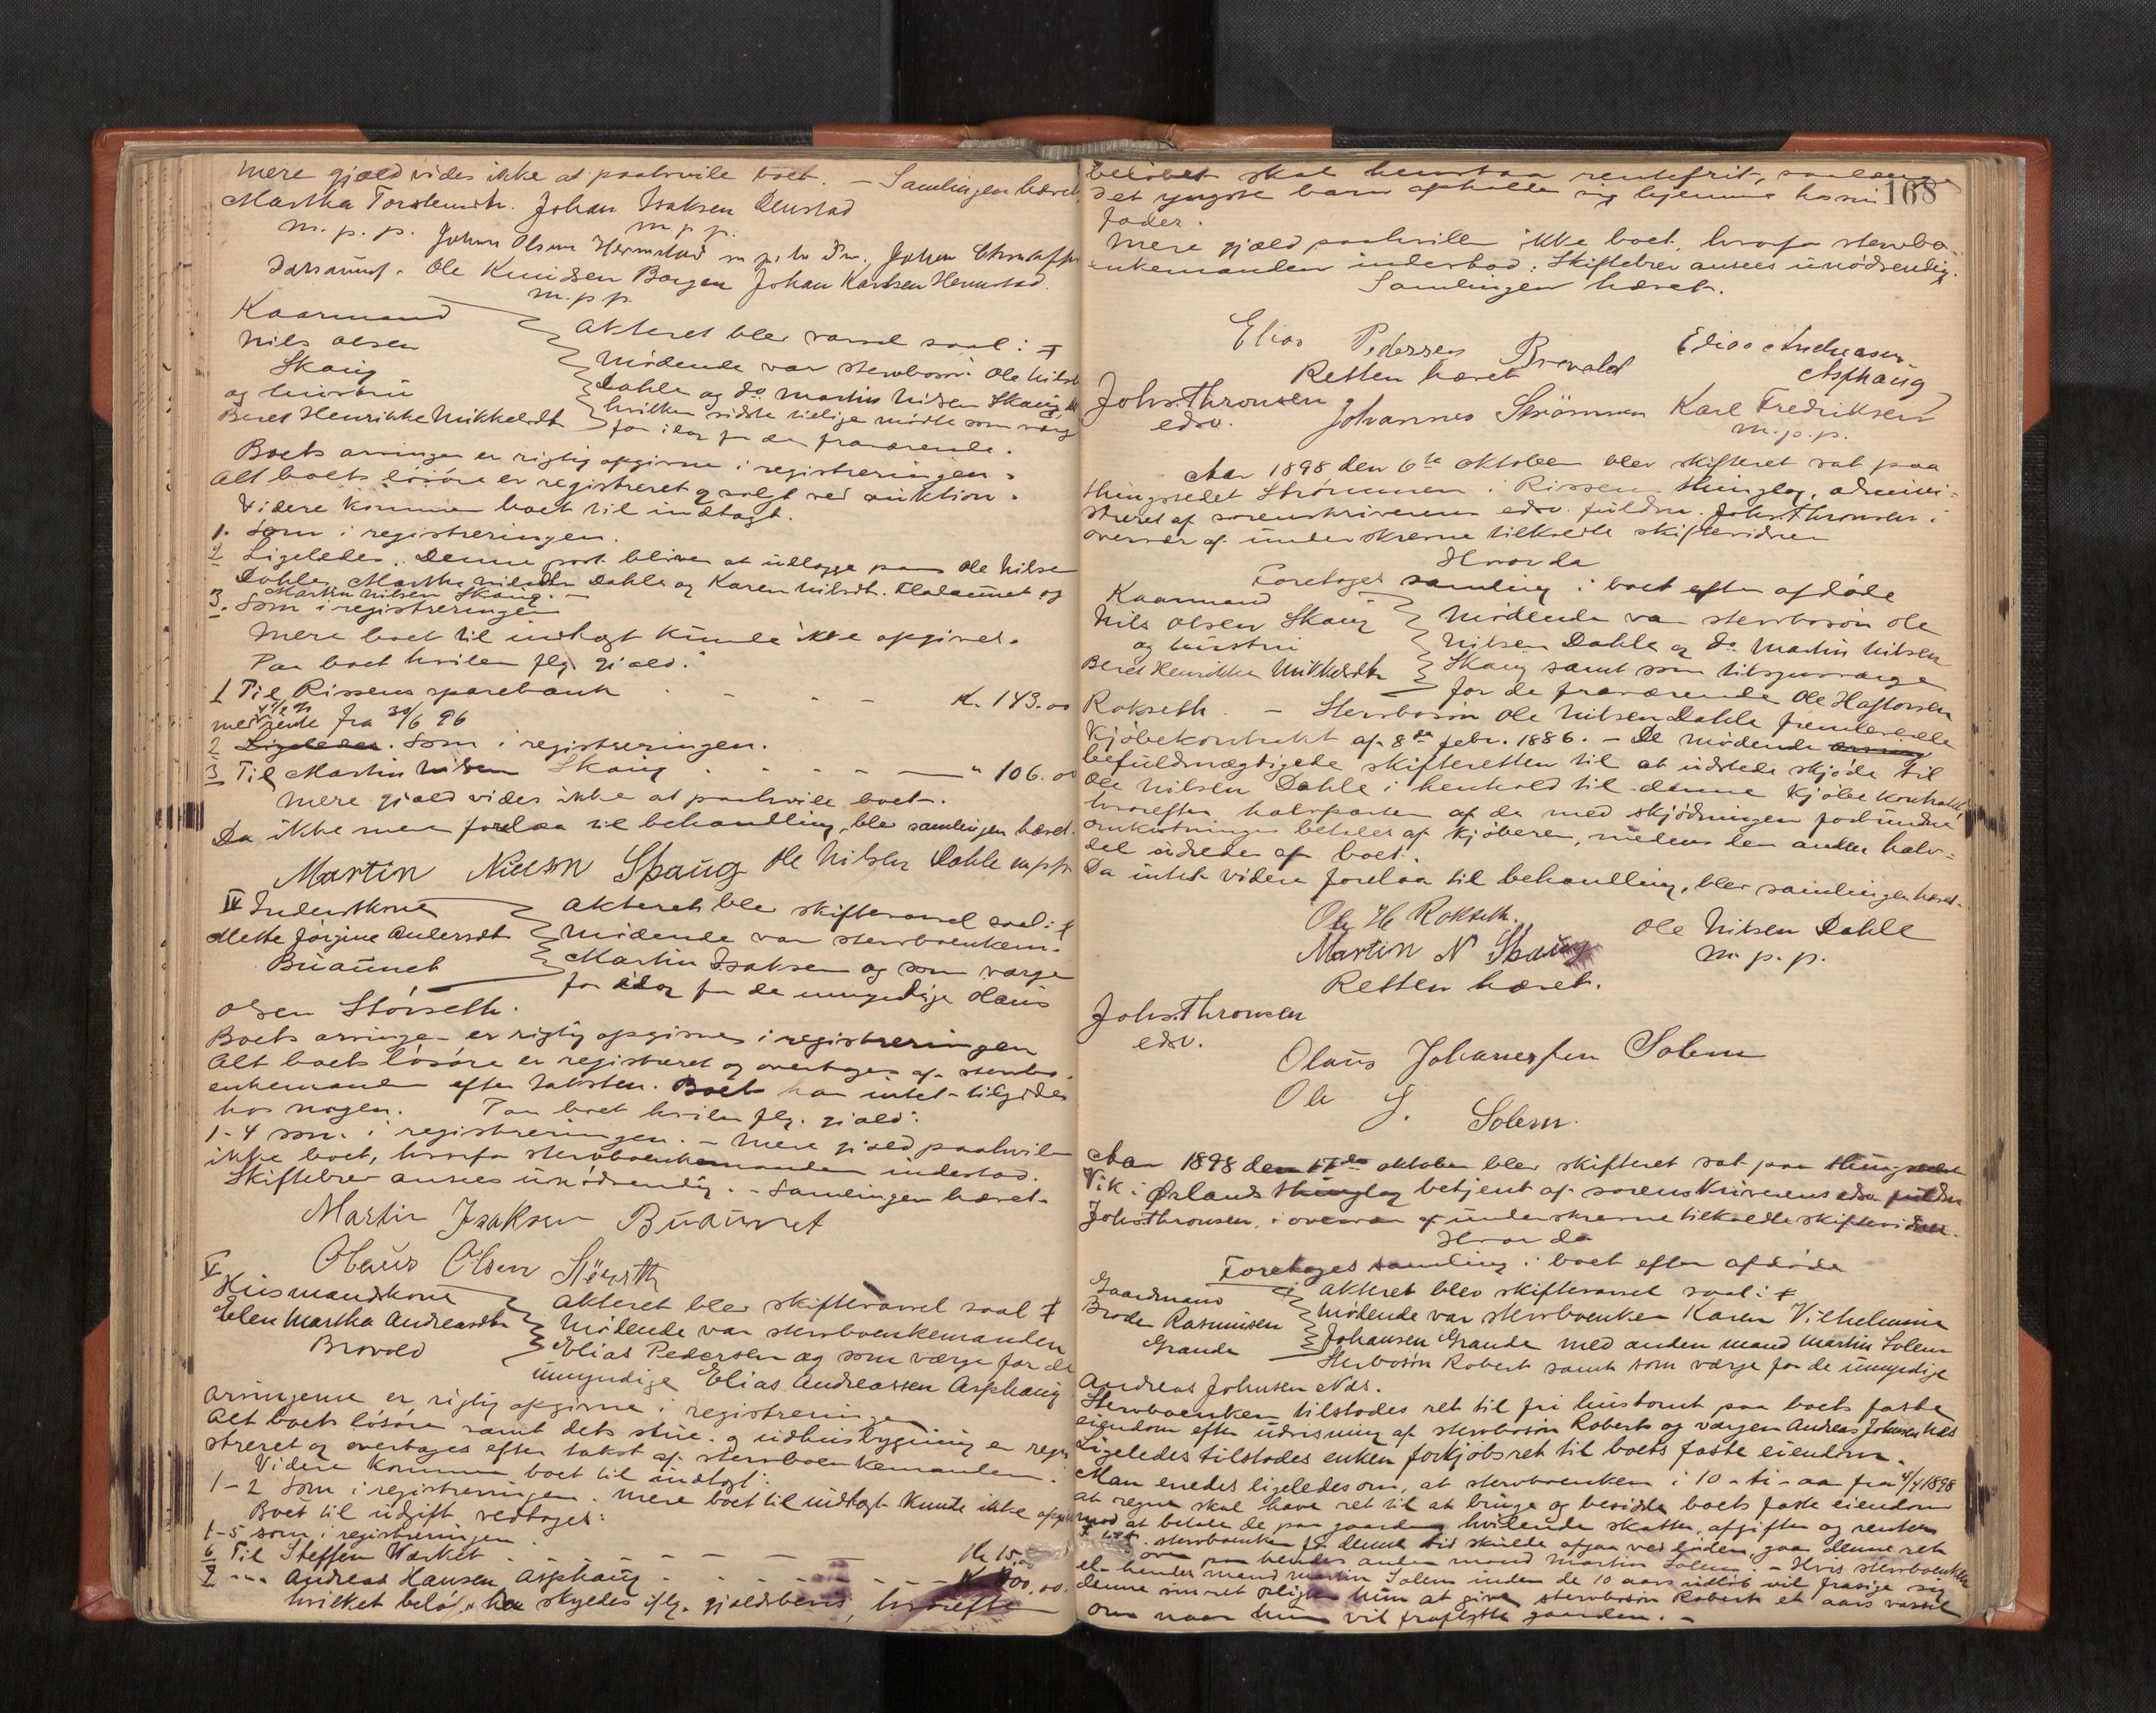 Mere gjæld vides ikke at paahvile boet. – Samlingen hævet.
Martha Torstensdtr. Johan Isaksen Denstad
m. p. p. m p p.
Johan Olsen Hermstad m p. Johan
Ole Knudsen Borgen Johan Karlsen Hermstad.
m. p p.
Kaarmand
Nils Olsen
Skaug
og hustru
Beret Henrikke Mikkelsdt
Akteret blev varsel saal:
Mødende var stervbosøn Ole Nilsen
Dahle og do. Martin Nilsen Skaug,
hvilken sidste tillige mødte som værge
for idag for den fraværende.
Boets arvinger er rigtig opgivne i registreringen.
Alt boets løsøre er registreret og solgt ved auktion.
Videre kommer boet til indtægt.
1. Som i registreringen.
2 Ligeledes. Denne post bliver at udlægge paa Ole Nilsen
Dahle, Marthe Nilsdtr Dahle og Karen Nilsdt. Fladaunet og
Martin Nilsen Skaug. –
3. Som i registreringen
Mere boet til indtægt kunde ikke opgives.
Paa boet hviler flg. gjæld:
1 Til Rissens sparebank - - - K. 143.00
med 4 1/2 % rente fra 30/6 96
2 Ligeledes. Som i registreringen.
3 Til Martin Nilsen Skaug - - - - " 106.00
Mere gjæld vides ikke at paahvile boet.
Da ikke mere forelaa til behandling, blev samlingen hævet.
Martin Nielsn Skaug Ole Nilsen Dahle m p p
IV Inderstkone
Mette Jørgine Andersdt
Buaunet
Akteret blev skiftevarsel saal:
Mødende var stervboenkem.
Martin Isaksen og som værge
for idag for de umyndige Olaus
Olsen Størseth.
Boets arvinger er rigtig opgivne i registreringen
Alt boets løsøre er registreret og overtages af stervbo-
enkemanden efter taksten. Boet har intet tilgode
hos nogen. Paa boet hviler flg. gjæld:
1-4 som i registreringen. – Mere gjæld paahviler
ikke boet, hvorfor stervboenkemanden indestod.
Skiftebrev ansees unødvendig. – Samlingen hævet.
Martin Isaksen Buaunet
Olaus Olsen Størseth
V Husmandskone
Elen Martha Andreasdtr
Brovold
Akteret blev skiftevarsel saal
Mødende var stervboenkemanden
Elias Pedersen og som værge for de
umyndige Elias Andreassen Asphaug
Arvingerne er rigtig opgivne i registreringen
Alt boets løsøre samt dets stue- og udhusbygning er regi-
streret og overtages efter takst af stervboenkemanden.
Videre kommer boet til indtægt:
1-2 Som i registreringen. Mere boet til indtægt kunde ikke opgives
Boet til udgift vedtages:
1-5 som i registreringen
6 Til Steffen Værket - - - - - Kr 15.00
7 --- Andreas Hansen Asphaug - - - - - - - 00.00.
hvilket beløb skyldes iflg. gjældsbevis, hvorefter
168
beløbet skal henstaa rentefrit, saalænge
det yngste barn opholder sig hjemme hos sin
fader.
Mere gjæld paahviler ikke boet, hvorfor stervbo-
enkemanden indestod. Skiftebrev ansees unødvendig.
Samlingen hævet.
Elias Pedersen Brovald Elias Andreasen Asphaug
Retten hævet
Johs. Thronsen
edsv.
Johannes Strømmen Karl Fredriksen
m. p. p.
Aar 1898 den 6te oktober blev skifteret sat paa
thingstedet Strømmen i Rissen thinglag, admini-
streret af sorenskriverens edsv. fuldm. Johs. Thronsen i
overvær af underskrevne tilkaldte skiftevidner
Hvorda
Foretoges samling i boet efter afdøde
Kaarmand
Nils Olsen Skaug
og hustru
Beret Henrikke Mikkelsdtr
Mødende var stervbosøn Ole
Nilsen Dahle og do Martin Nilsen
Skaug samt som tilsynsværge
for de fraværende Ole Haftorsen
Rokseth. – Stervbosøn Ole Nilsen Dahle fremlagde
kjøbekontrakt af 8de febr. 1886. – De mødende
befuldmægtigede skifteretten til at udstede skjøde til
Ole Nilsen Dahle i henhold til denne kjøbekontrakt,
hvorefter halvparten af de med skjødningen forbundne
omkostninger betales af kjøberen, medens den anden halv-
del udredes af boet.
Da intet videre forelaa til behandling, blev samlingen hævet.
Ole H. Rokseth. Ole Nilsen Dahle
Martin N Skaug m. p. p.
Retten hævet.
Johs. Thronsen
edsv.
Olaus Johanessen Solem
Ole J. Solem.
Aar 1898 den 17de oktober blev skifteret sat paa thingstedet
Vik i Ørlands thinglag betjent af sorenskriverens edsv. fuldm
Johs. Thronsen, i overvær af underskrevne tilkaldte skiftevidner.
Hvor da
Foretoges samling i boet efter afdøde
Gaardmand
Broder Rasmussen
Grande
Akteret blev skiftevarsel saal:
Mødende var stervboenken Karen Vilhelmine
Johansen Grande med anden mand Martin Solem
Stervbosøn Robert samt som værge for de umyndige
Andreas Johnsen Næs.
Stervboenken tilstodes ret til fri hustomt paa boets faste
eiendom efter udvisning af stervbosøn Robert og værgen Andreas Johnsen Næs
Ligeledes tilstodes enken forkjøbsret til boets faste eiendom.
Man enedes ligeledes om, at stervboenken i 10 - ti - aar fra 4/4 1898
at regne skal have ret til at bruge og besidde boets faste eiendom
mod at betale de paa gaarden hvilende skatter, afgifter og renter
stervboenken før denne tid skulde afgaa ved døden, gaa denne ret
over paa hendes anden mand Martin Solem. – Hvis stervboenken
el. hendes mand Martin Solem inden de 10 aars udløb vil frasige sig
denne sin ret pligter hun at give stervbosøn Robert et aars varsel
om naar hun vil fraflytte gaarden. –